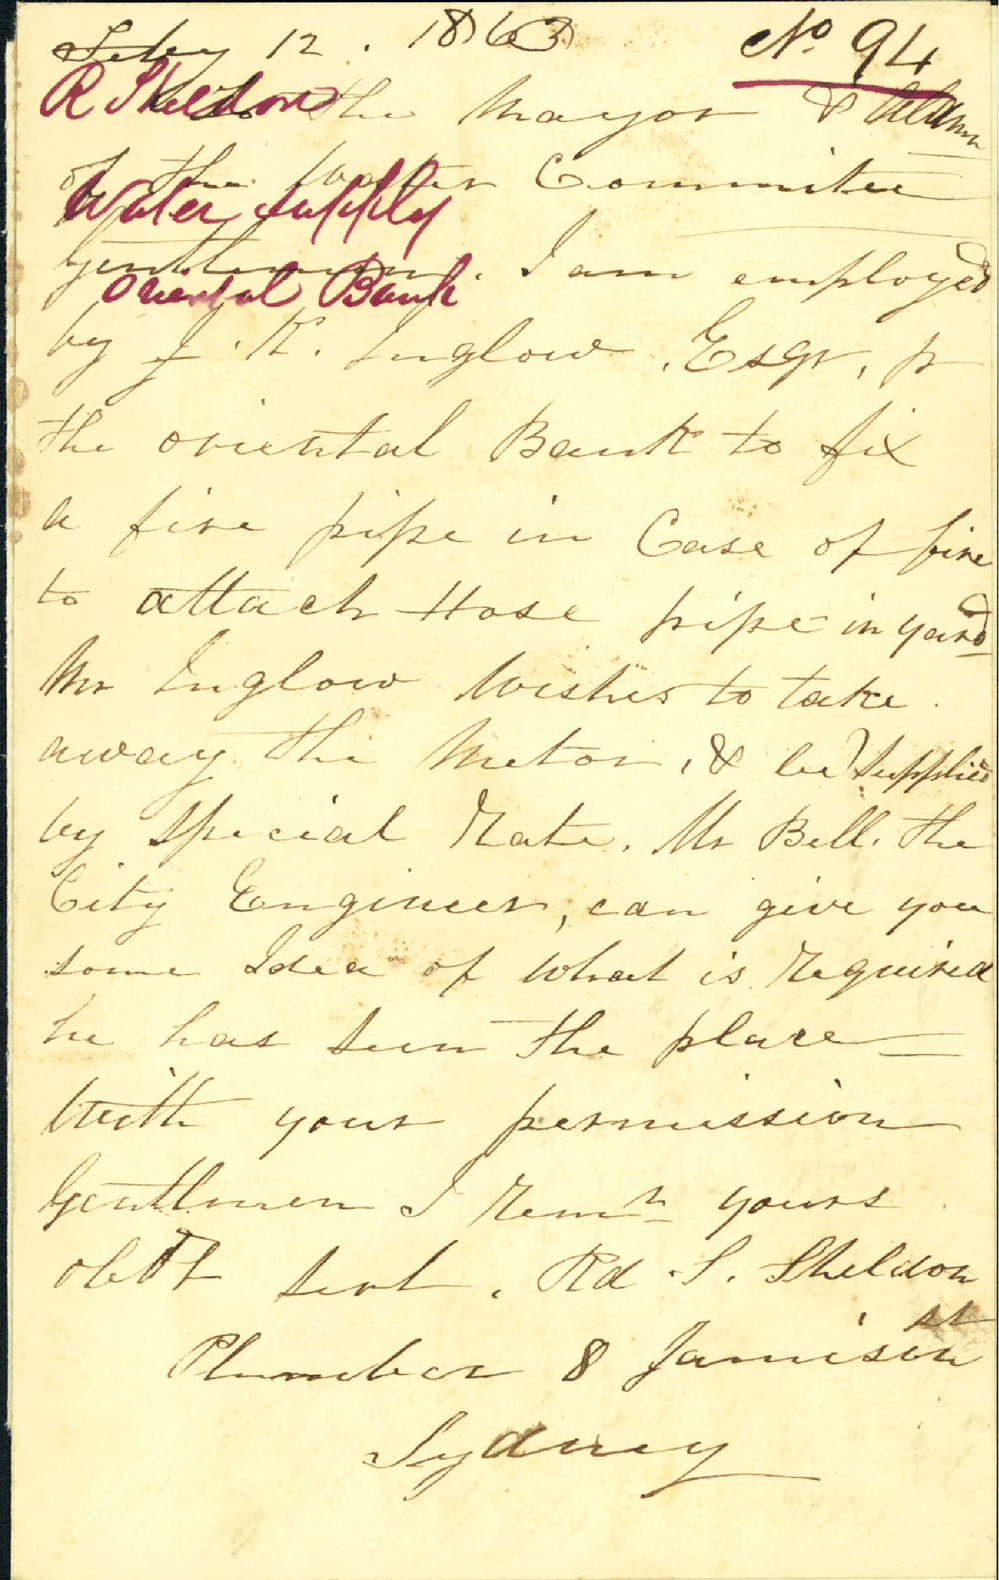 Feby 12. 1863
No 94
R Sheldon
To the Mayor & Aldmn
of the Water Committee
Water Supply
Gentlemen. I am employed
Oriental Bank
by J. K. Inglow. Esqr, pr
the oriental Bank to fix
a fire pipe in Case of fire
to attach Hose pipe in yard
Mr Inglow Wishes to take
away the Metor, & be Supplied
by Special Rate. Mr Bell. the
City Engineer, can give you
some Idea of What is required
he has seen the place
With your permission
Gentlmen I Remn yours
obdt servt. Rd. S. Sheldon
Plumber 8 Jamison st
Sydney